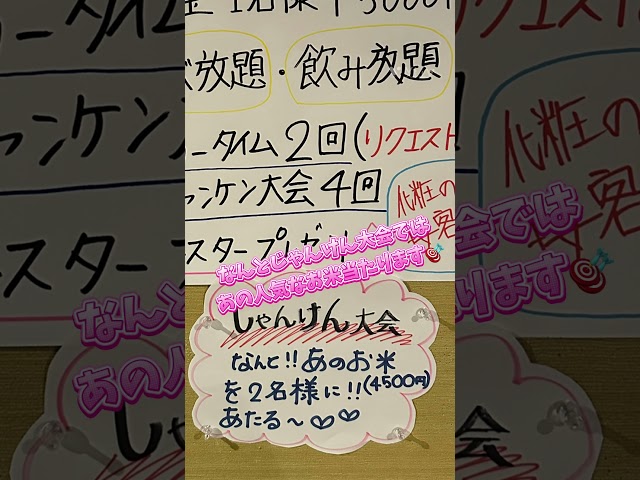 放題・飲み放題
ータイム2回(リクエスト
ャンケン大会4回
化粧の
スタープレゼ
なんとじゃんけん大会では
あの人気なお米当たります🎯
じゃんけん大会
なんと!!あのお米
を2名様に!!(4500円)
あたる～♡♡